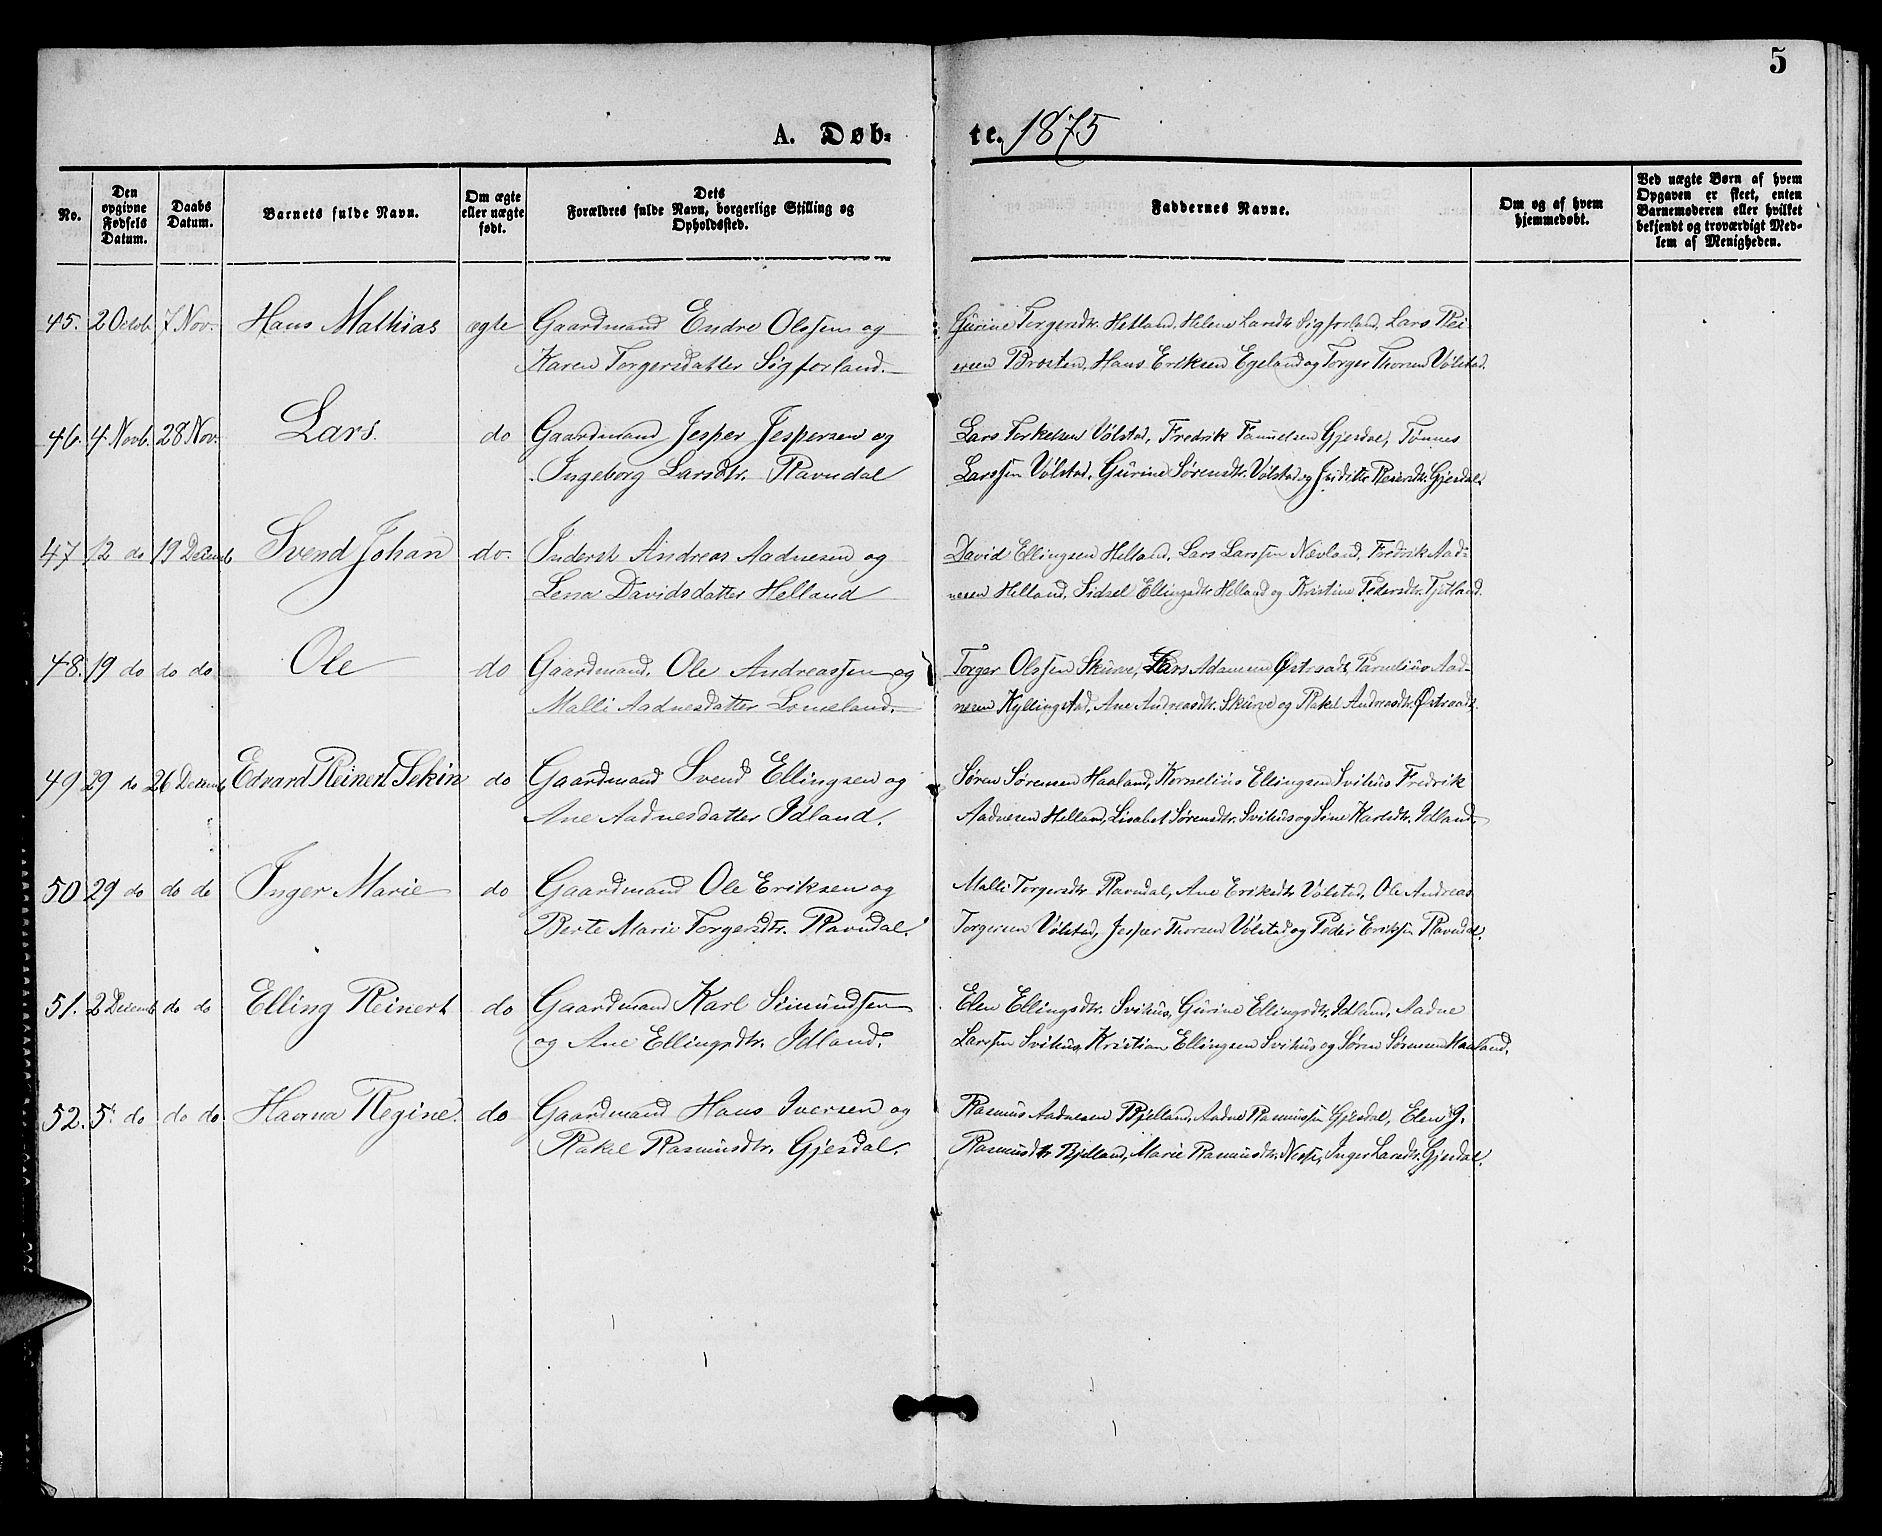 5
A. Døb-
te. 1875
No.
Den
opgivne
Fødsels
Datum.
Daabs
Datum.
Barnets fulde Navn.
Om ægte
eller uægte
født.
Dets
Forældres fulde Navn, borgerlige Stilling og
Opholdssted.
Faddernes Navne.
Om og af hvem
hjemmedøbt.
Ved uægte Børn af hvem
Opgaven er skeet, enten
Barnemoderen eller hvilket
bekjendt og troværdigt Med-
lem af Menigheden.
45. 2 Octob. 7 Nov. Hans Mathias ægte Gaardmand Endre Olssen og
Karen Torgersdatter Sigforland.
Gurine Torgersdtr. Hetland, Helene Larsdtr Sigforland, Lars Rei-
ersen Brosten, Hans Eriksen Egeland og Torger Thorsen Vølstad.
46. 4 Novb. 28 Nov. Lars. do Gaardmand Jesper Jespersen og
Ingeborg Larsdtr. Ravndal
Lars Torkelsen Vølstad, Fredrik Samuelsen Gjesdal, Tønnes
Larssen Vølstad, Gurine Sørensdtr. Vølstad og Reiersdtr. Gjesdal.
47 12 do 19 Decemb Svend Johan do. Inderst Andreas Aadnesen og
Lena Davidsdatter Helland
David Ellingsen Helland, Lars Larssen Nevland, Fredrik Aad-
nesen Helland, Sidsel Ellingsdtr Helland og Kristine Pedersdtr. Fjetland.
48. 19 do do do Ole do Gaardmand. Ole Andreassen og
Malli Aadnesdatter Lomeland.
Torger Olssen Skurve, Lars Adamsen Østraadt, Parnelius Aad-
nesen Kyllingstad, Ane Andreasdtr. Skurve og Rakel Andreasdtr. Østraadt.
49 29 do 26 Decemb Edvard Reinert Sekin do Gaardmand Svend Ellingsen og
Ane Aadnesdatter Idland.
Søren Sørensen Haaland, Kornelius Ellingsen Svihus Fredrik
Aadnesen Helland, Lisabet Sørensdtr. Svihus og Sine Karlsdtr. Idland.
50 29 do do do Inger Marie do Gaardmand Ole Eriksen og
Berte Marie Torgersdtr. Ravndal.
Malli Torgersdtr. Ravndal, Ane Eriksdtr Vølstad, Ole Andreas
Torgersen Vølstad, Jesper Thorsen Vølstad og Peder Eriksen Ravndal.
51. 2 Decemb do do Elling Reinert do Gaardmand Karl Simundsen
og Ane Ellingsdtr. Idland.
Elen Ellingsdtr. Svihus, Gurine Ellingsdtr. Idland, Aadne
Larssen Svihus Kristian Ellingsen Svihus og Søren Sørensen Haaland.
52. 5 do do do Hanna Regine. do Gaardmand Hans Iversen og
Rakel Rasmusdtr. Gjesdal.
Rasmus Aadnesen Bjelland, Aadne Rasmussen Gjesdal, Elen G.
Rasmusdtr Bjelland, Marie Rasmusdtr. Nesse, Inger Larsdtr. Gjesdal.